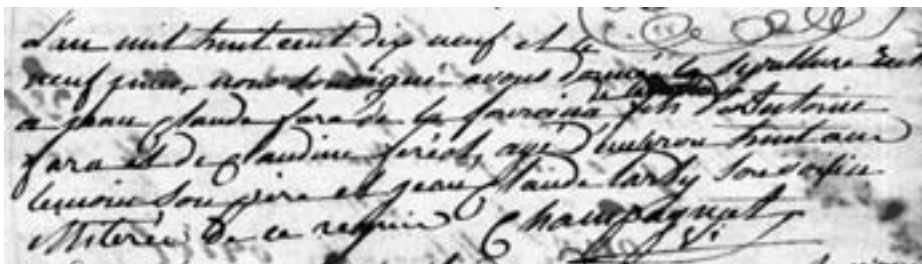 L'an mil huit cent dix neuf et le
neuf juin, nous soussigné avons donné la sepulture
a jean Claude fara de la fils d'Antoine
fara et de Claudine feréol, agé d'environ huit ans
temoins son père et jean Claude tardy
illiterés de ce requis Champagnat